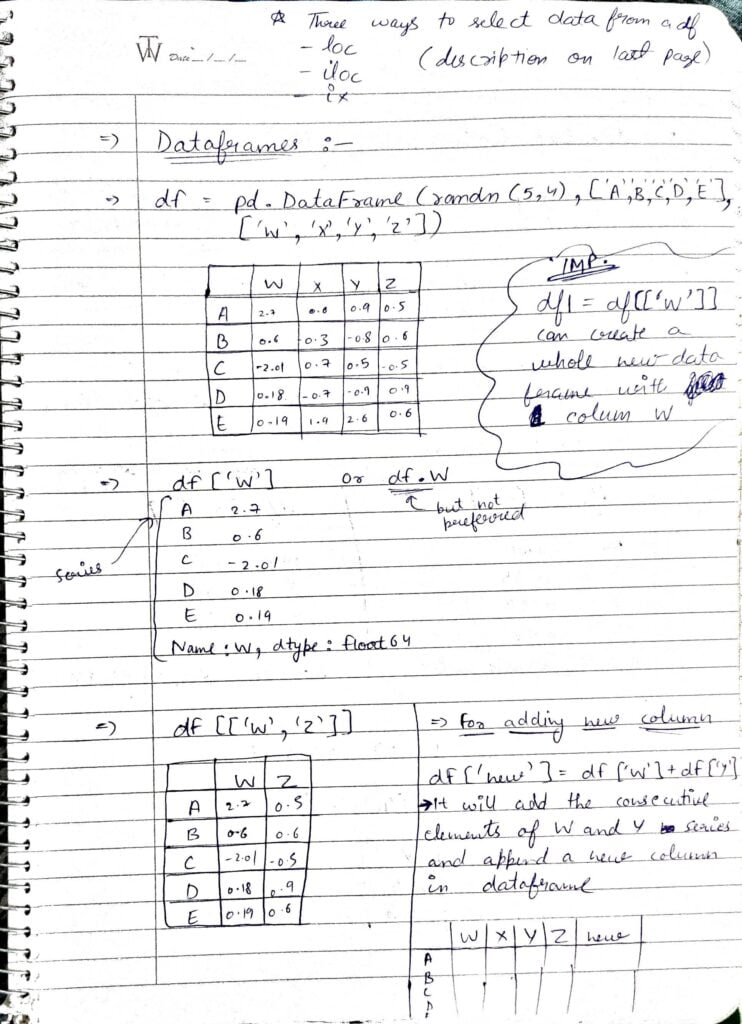 * Three ways to select data from a df
- loc (description on last page)
- iloc
- ix
Date _/_/_
=> Dataframes :-
=> df = pd. DataFrame (randn (5,4), ['A','B','C','D','E'],
['W', 'X', 'Y', 'Z'])
W X Y Z
A 2.7 0.6 0.9 0.5
B 0.6 0.3 -0.8 0.6
C -2.01 0.7 0.5 -0.5
D 0.18 -0.7 -0.9 0.9
E 0.19 1.9 2.6 0.6
IMP.
df1 = df[['W']]
can create a
whole new data
frame with
colum W
=> df ['W'] or df.W
but not
preferred
series
A 2.7
B 0.6
C -2.01
D 0.18
E 0.19
Name : W, dtype : float64
=> df [['W', 'Z']]
W Z
A 2.7 0.5
B 0.6 0.6
C -2.01 -0.5
D 0.18 0.9
E 0.19 0.6
=> For adding new column
df ['new'] = df ['W'] + df ['Y']
→ It will add the consecutive
elements of W and Y series
and append a new column
in dataframe
W X Y Z new
A
B
C
D